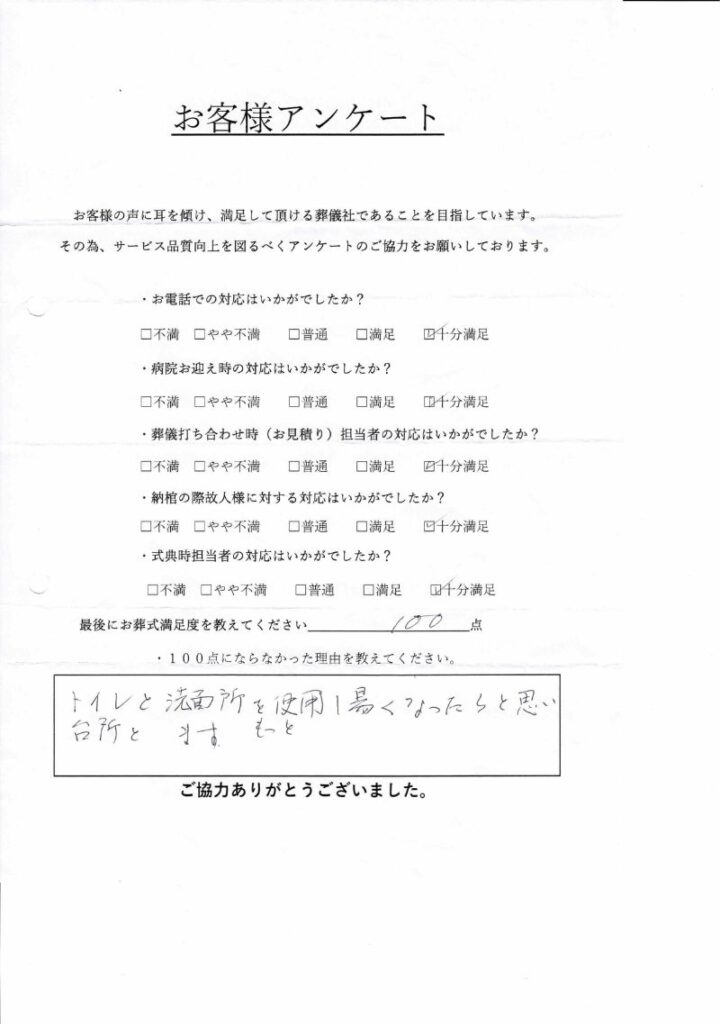 お客様アンケート
お客様の声に耳を傾け、満足して頂ける葬儀社であることを目指しています。
その為、サービス品質向上を図るべくアンケートのご協力をお願いしております。
・お電話での対応はいかがでしたか？
□不満 □やや不満 □普通 □満足 ☑十分満足
・病院お迎え時の対応はいかがでしたか？
□不満 □やや不満 □普通 □満足 ☑十分満足
・葬儀打ち合わせ時（お見積り）担当者の対応はいかがでしたか？
□不満 □やや不満 □普通 □満足 ☑十分満足
・納棺の際故人様に対する対応はいかがでしたか？
□不満 □やや不満 □普通 □満足 ☑十分満足
・式典時担当者の対応はいかがでしたか？
□不満 □やや不満 □普通 □満足 ☑十分満足
最後にお葬式満足度を教えてください 100 点
・１００点にならなかった理由を教えてください。
トイレと洗面所を使用し易くなったらと思い
台所と ます もっと
ご協力ありがとうございました。